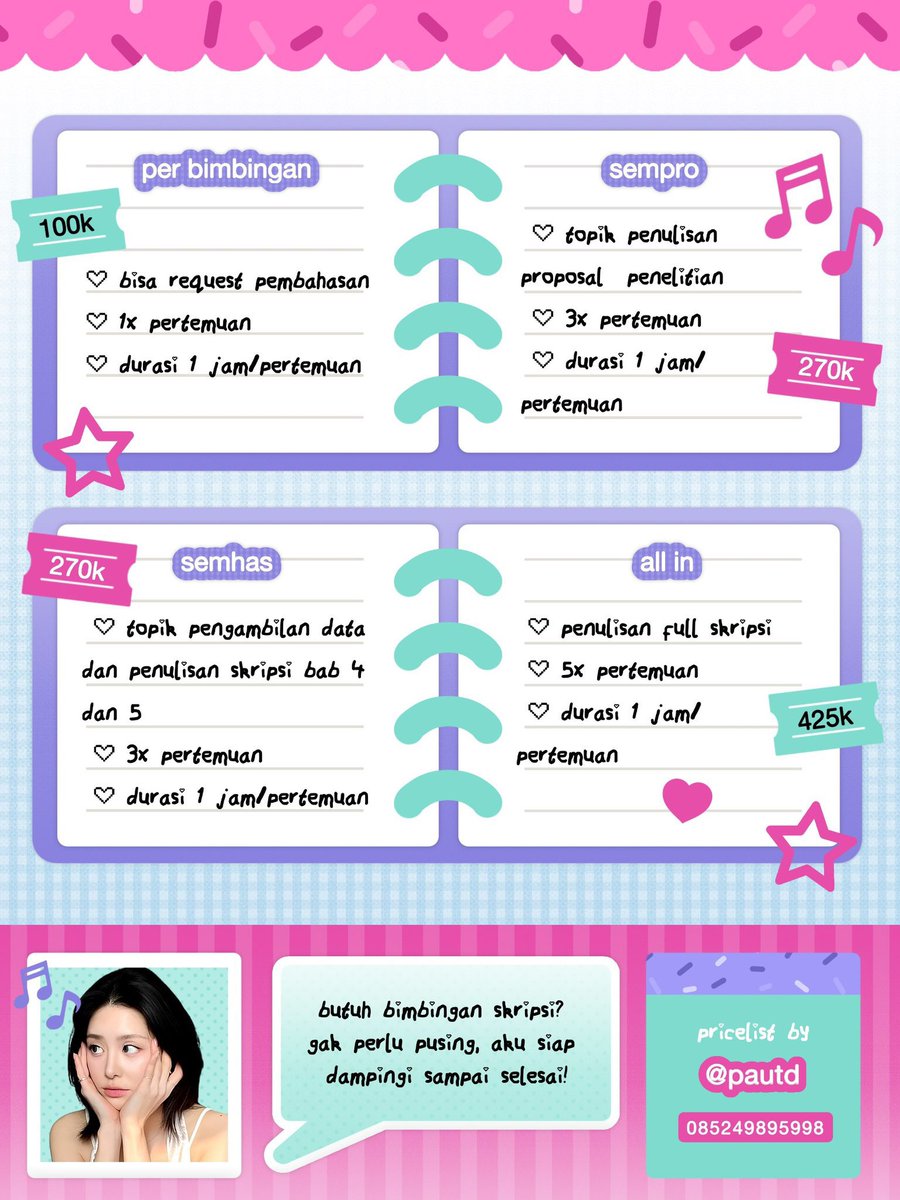 per bimbingan
100k
bisa request pembahasan
1x pertemuan
durasi 1 jam/pertemuan
sempro
topik penulisan
proposal penelitian
3x pertemuan
durasi 1 jam/
pertemuan
270k
semhas
270k
topik pengambilan data
dan penulisan skripsi bab 4
dan 5
3x pertemuan
durasi 1 jam/pertemuan
all in
penulisan full skripsi
5x pertemuan
durasi 1 jam/
pertemuan
425k
butuh bimbingan skripsi?
gak perlu pusing, aku siap
dampingi sampai selesai!
pricelist by
@pautd
085249895998